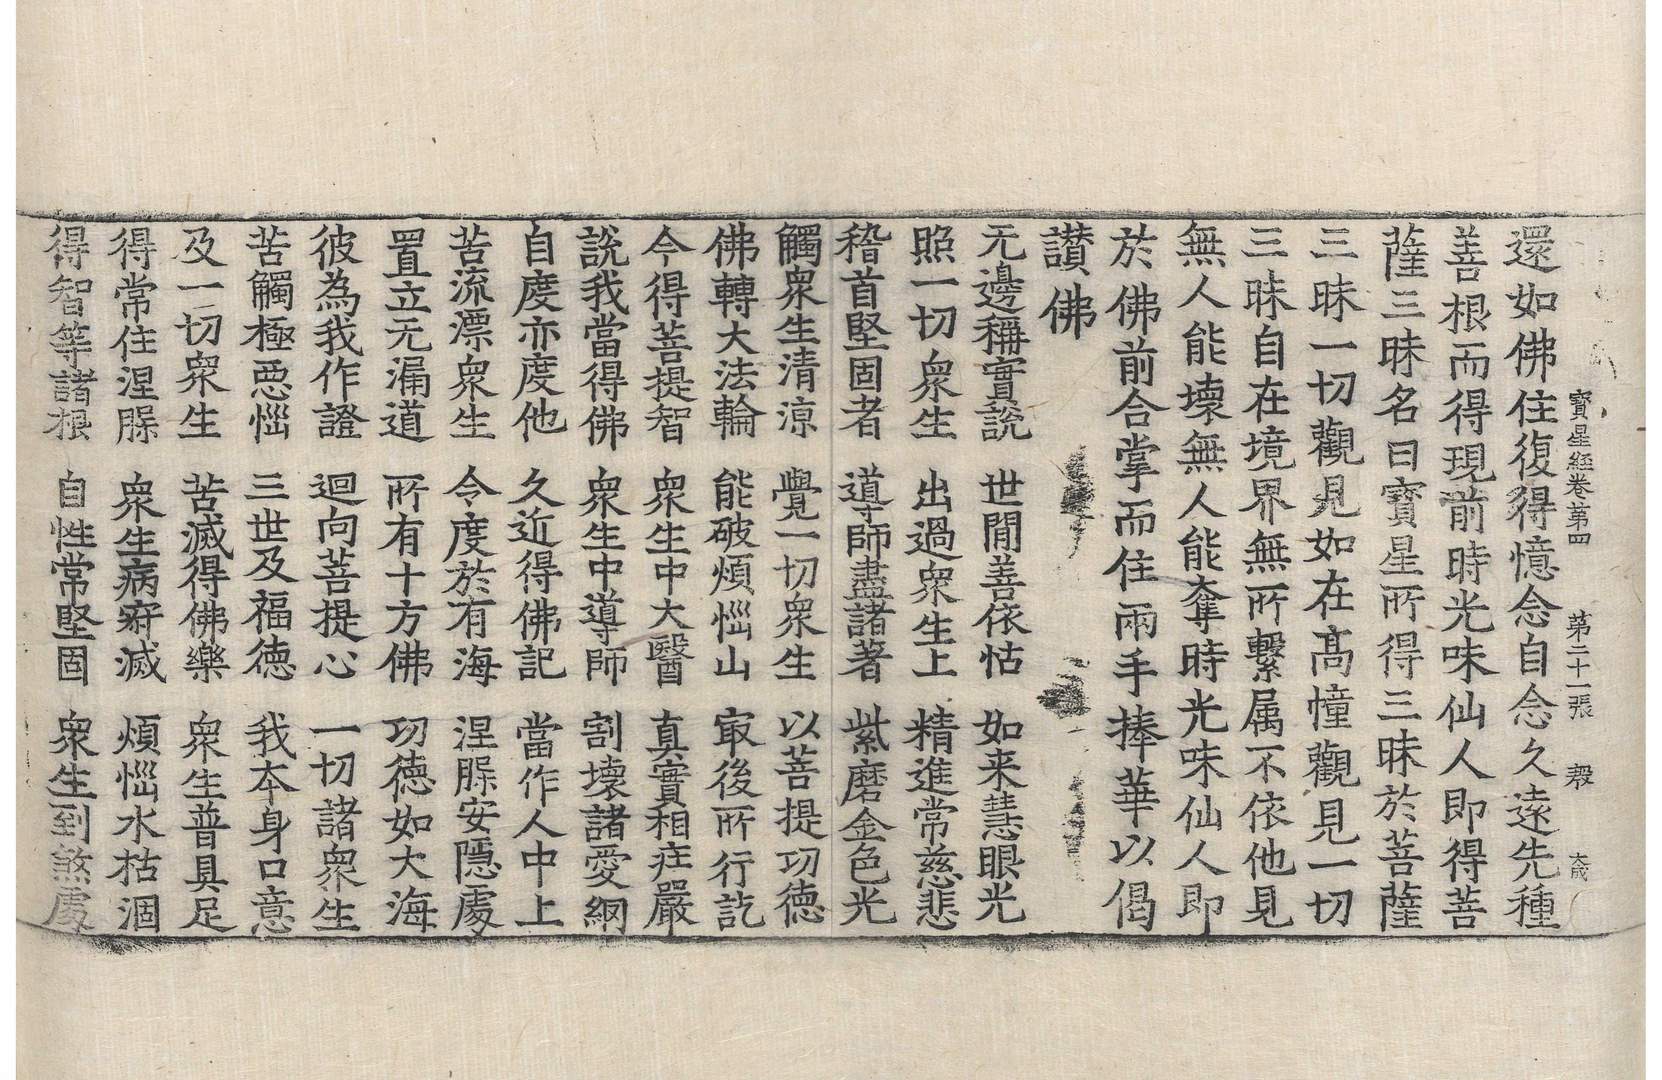 寶星經卷第四 第二十一張 穀 大成
還如佛住復得憶念自念久遠先種
善根而得現前時光味仙人即得菩
薩三昧名曰寶星所得三昧於菩薩
三昧一切觀見如在高幢觀見一切
三昧自在境界無所繫属不依他見
無人能壞無人能奪時光味仙人即
於佛前合掌而住兩手捧華以偈
讃佛
无邊稱實說 世閒善依怙 如来慧眼光
照一切衆生 出過衆生上 精進常慈悲
稽首堅固者 導師盡諸著 紫磨金色光
觸衆生清涼 覺一切衆生 以菩提功德
佛轉大法輪 能破煩惱山 㝡後所行訖
今得菩提智 衆生中大醫 真實相莊嚴
說我當得佛 衆生中導師 割壞諸愛網
自度亦度他 久近得佛記 當作人中上
苦流漂衆生 令度於有海 涅槃安隱處
置立无漏道 所有十方佛 功德如大海
彼為我作證 迴向菩提心 一切諸衆生
苦觸極惡惱 三世及福德 我本身口意
及一切衆生 苦滅得佛樂 衆生普具足
得常住涅槃 衆生病瘀滅 煩惱水枯涸
得智等諸根 自性常堅固 衆生到煞處